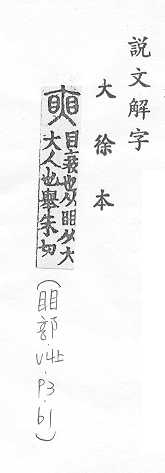 說文解字
大徐本
目衺也从䀠从大
大人也舉朱切
(䀠部.V4上.P3.b1)